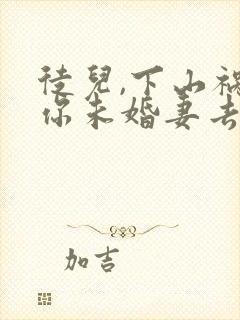 徒兒,下山禍
你未婚妻去
加吉